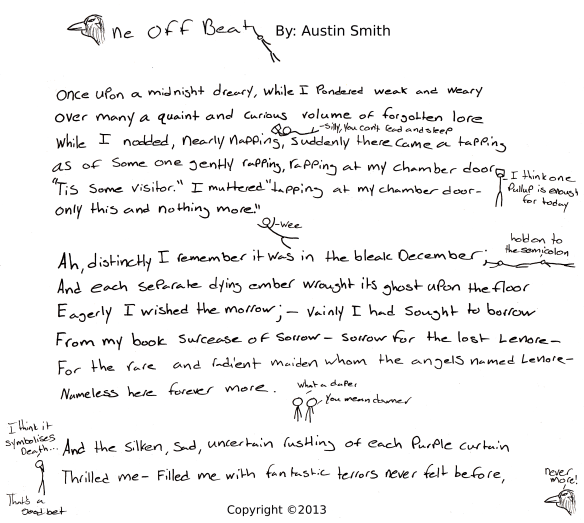 One Off Beat By: Austin Smith
Once upon a midnight dreary, while I pondered weak and weary
over many a quaint and curious volume of forgotten lore
-silly, you can't read and sleep
while I nodded, nearly napping, suddenly there came a tapping
as of some one gently rapping, rapping at my chamber door
"Tis some visitor." I muttered "tapping at my chamber door-
only this and nothing more."
I think one
Pullup is enough
for today
-wee
Ah, distinctly I remember it was in the bleak December;
hold on to
the semicolon
And each separate dying ember wrought its ghost upon the floor
Eagerly I wished the morrow; - vainly I had sought to borrow
From my book surcease of sorrow - sorrow for the lost Lenore-
For the rare and radient maiden whom the angels named Lenore-
Nameless here forever more.
what a
You mean
I think it
symbolises
Death...
And the silken, sad, uncertain rustling of each purple curtain
Thrilled me- Filled me with fantastic terrors never felt before,
That's a
good bet
never
more!
Copyright ©2013